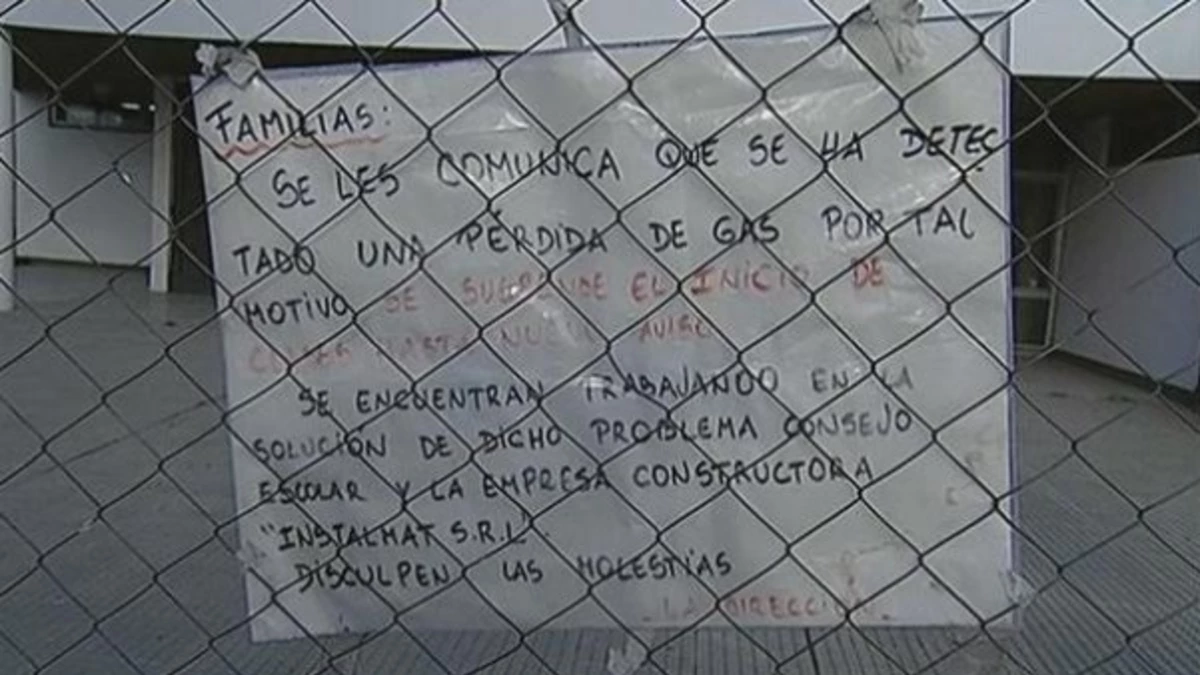 FAMILIAS:
SE LES COMUNICA QUE SE HA DETEC
TADO UNA PÉRDIDA DE GAS POR TAL
MOTIVO SE SUSPENDE EL INICIO DE
CLASES HASTA NUEVO AVISO
SE ENCUENTRAN TRABAJANDO EN LA
SOLUCIÓN DE DICHO PROBLEMA CONSEJO
ESCOLAR Y LA EMPRESA CONSTRUCTORA
"INSTALMAT S.R.L"
DISCULPEN LAS MOLESTIAS
LA DIRECCIÓN